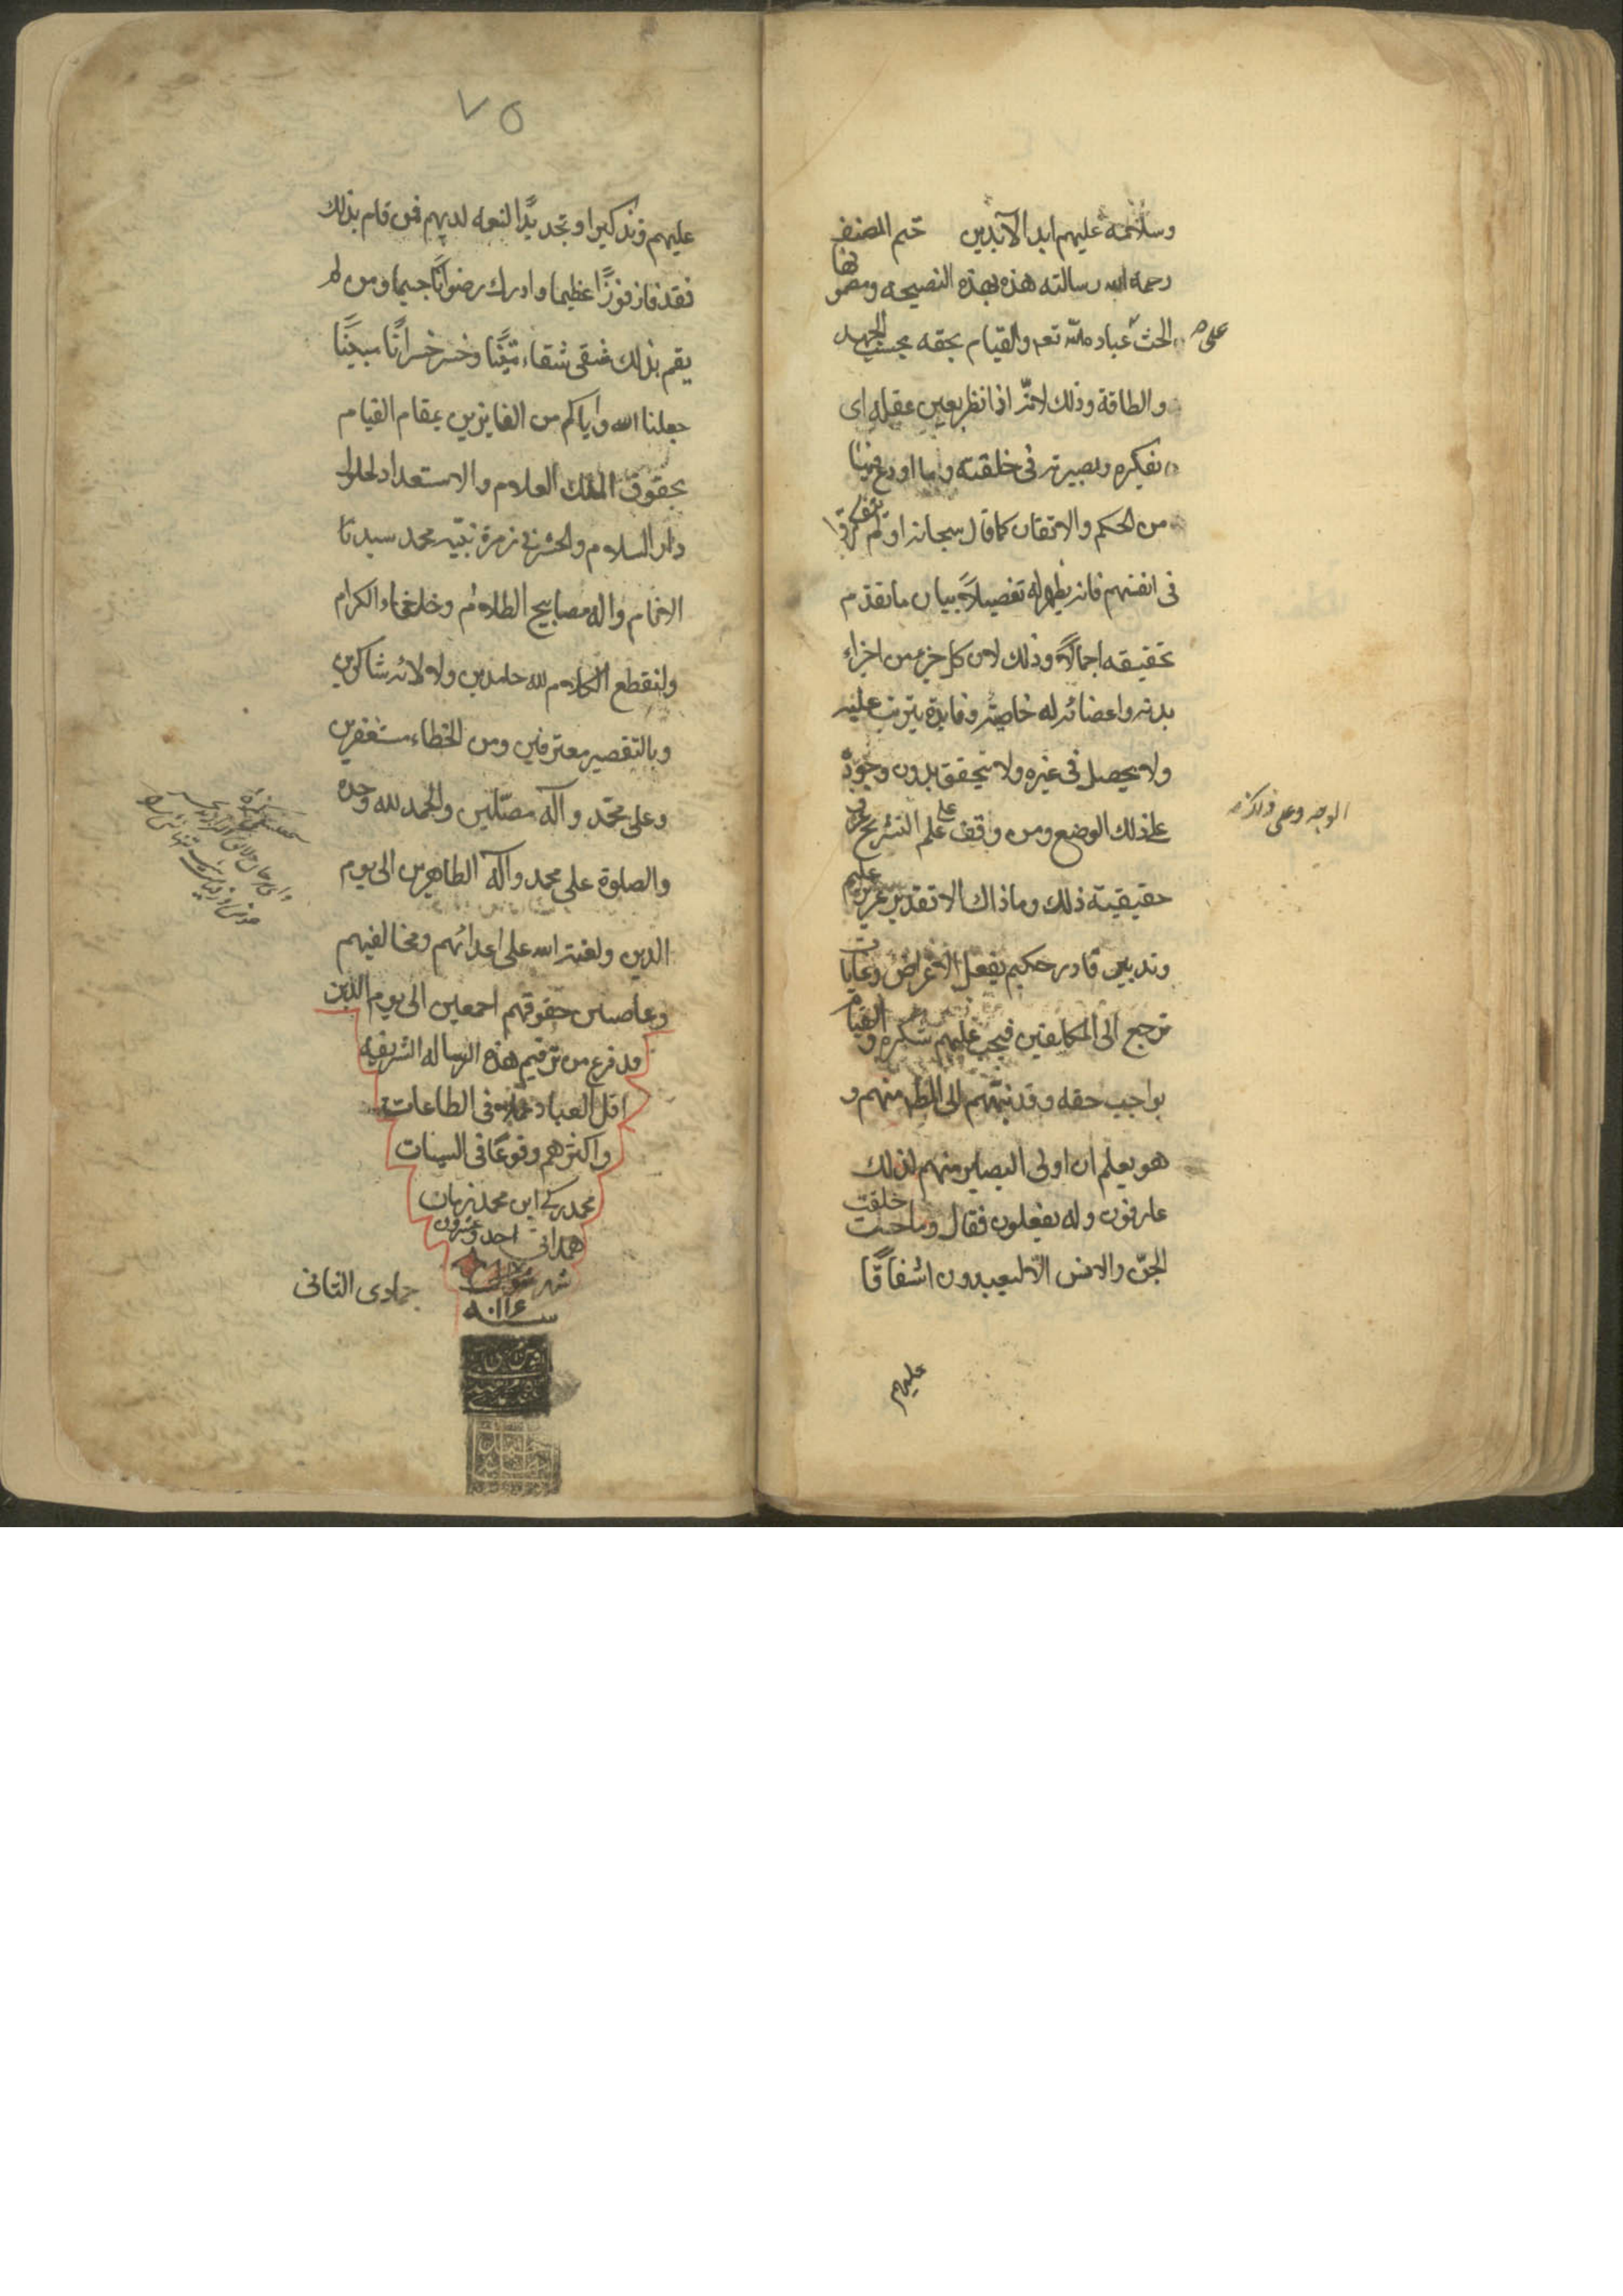 وسلامه عليهم ابد الآبدين ختم المصنف
رحمه الله رسالته هذه بهذه النصيحه ومضمونها
الحث على عبادة الله تعم والقيام بحقه بحسب الجهد
والطاقة وذلك لانه اذا نظر بعين عقله اى
بفكره وبصيرته فى خلقته وما اودع فيها
من الحكم والاتقان كما قال سبحانه اولم يتفكروا
فى انفسهم فانه يظهر له تفصيلاً بيان ما تقدم
تحقيقه اجمالاً وذلك لان كل جزء من اجزاء
بدنه واعضائه له خاصيته وفايدة يترتب عليه
ولا يحصل فى غيره ولا يتحقق بدون وجوده
على ذلك الوضع ومن وقف على علم التشريح عرف
حقيقية ذلك وما ذاك الا تقدير عزيز عليم
وتدبير قادر حكيم يفعل الاغراض وغايات
ترجع الى المكلفين فيجب عليهم شكره والقيام
بواجب حقه وقد نبههم الى المطلوب منهم و
هو يعلم ان اولى البصاير منهم لذلك
عارفون وله يفعلون فقال وما خلقت
الجن والانس الا ليعبدون اشفاقًا
عليهم
الوجه وعلى
٧٥
عليهم وتذكيرا وتجديدًا لنعمه لديهم فمن قام بذلك
فقد فاز فوزًا عظيما وادرك رضوانًا جسيما ومن لم
يقم بذلك فشقى شقاء متينًا وخسر خسرانًا مبينًا
جعلنا الله واياكم من الفايزين بمقام القيام
بحقوق الملك العلام والاستعداد لحلول
دار السلام والحشر فى زمرة نبيه محمد سيدنا
الانام واله مصابيح الظلام وخلفاء الكرام
ولنقطع الكلام لله حامدين ولالائه شاكرين
وبالتقصير معترفين ومن الخطاء مستغفرين
وعلى محمد وآله مصلين والحمد لله وحده
والصلوة على محمد وآله الطاهرين الى يوم
الدين ولعنة الله على اعدائهم ومخالفيهم
وغاصبين حقوقهم اجمعين الى يوم الدين
قد فرغ من ترقيم هذه الرساله الشريفه
اقل العباد عملا فى الطاعات
واكثرهم وقوعًا فى السيئات
محمد زكى ابن محمد زمان
همدانى احد وعشرون
شهر جمادى الثانى
سنه